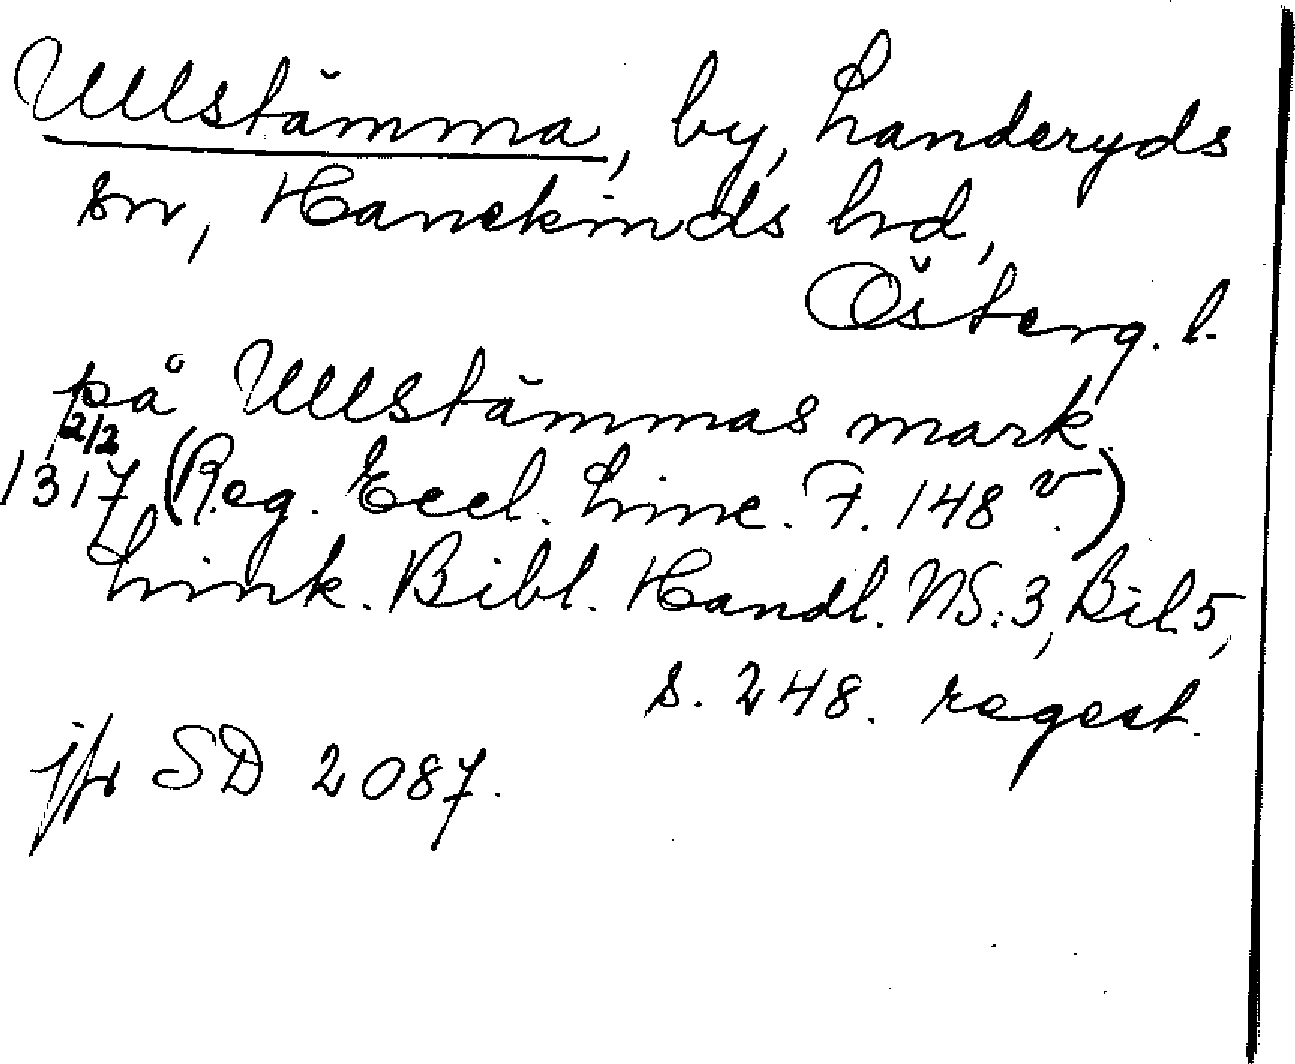 Ullstämma, by, Landeryds
sn, Hanekinds hd,
Österg. l.
på Ullstämmas mark
12/2
1317 (Reg. Eccl. Linc. F. 148 v.)
Link. Bibl. Handl. NS:3, Bil 5,
s. 248. regest.
jfr SD 2087.